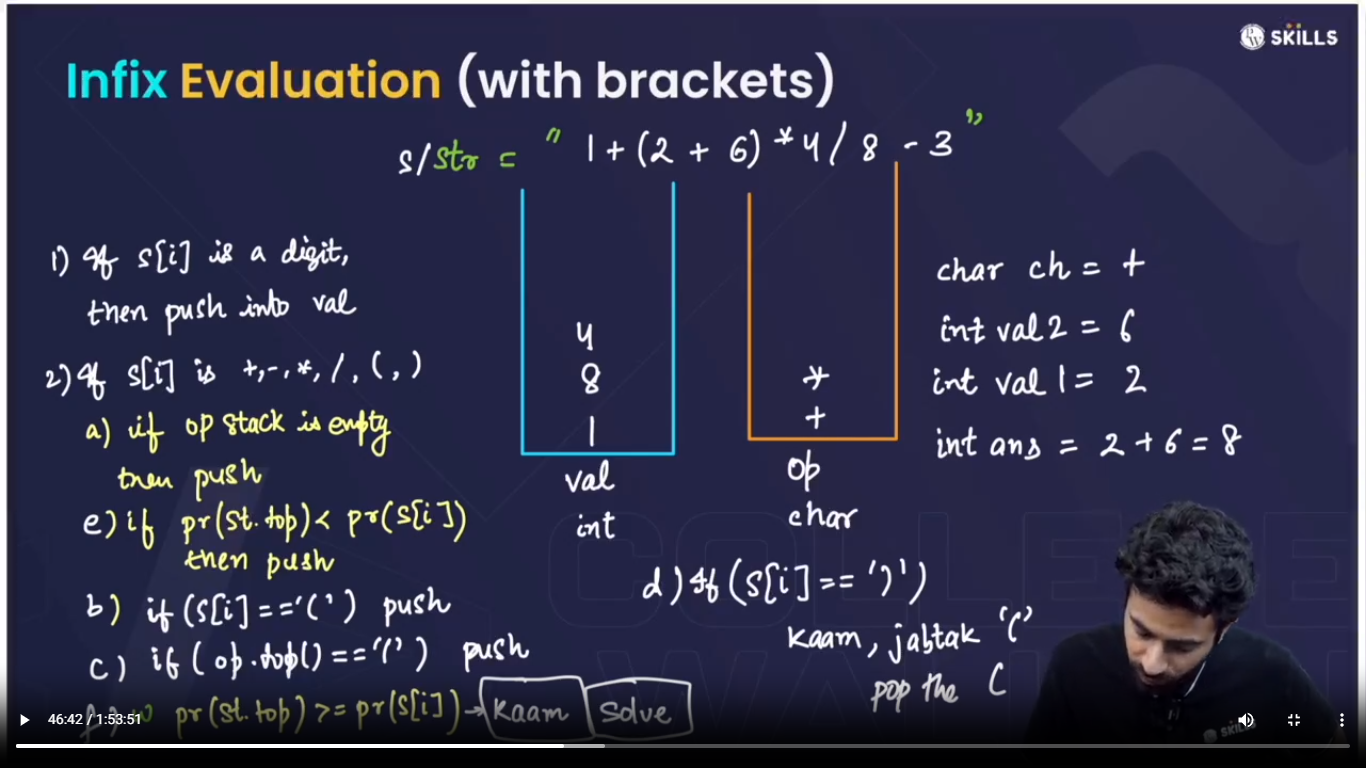 SKILLS
Infix Evaluation (with brackets)
s/str = " 1 + (2 + 6) * 4 / 8 - 3 "
1) If s[i] is a digit,
then push into val
2) If s[i] is +,-,*,/,(,)
a) if op stack is empty
then push
e) if pr(st.top) < pr(s[i])
then push
b) if (s[i]=='(') push
c) if (op.top()=='(') push
pr(st.top) >= pr(s[i]) → Kaam Solve
4
8
1
val
int
*
+
op
char
d) If (s[i] == ')')
Kaam, jabtak '('
pop the (
char ch = +
int val2 = 6
int val1 = 2
int ans = 2 + 6 = 8
46:42 / 1:53:51
SKILLS